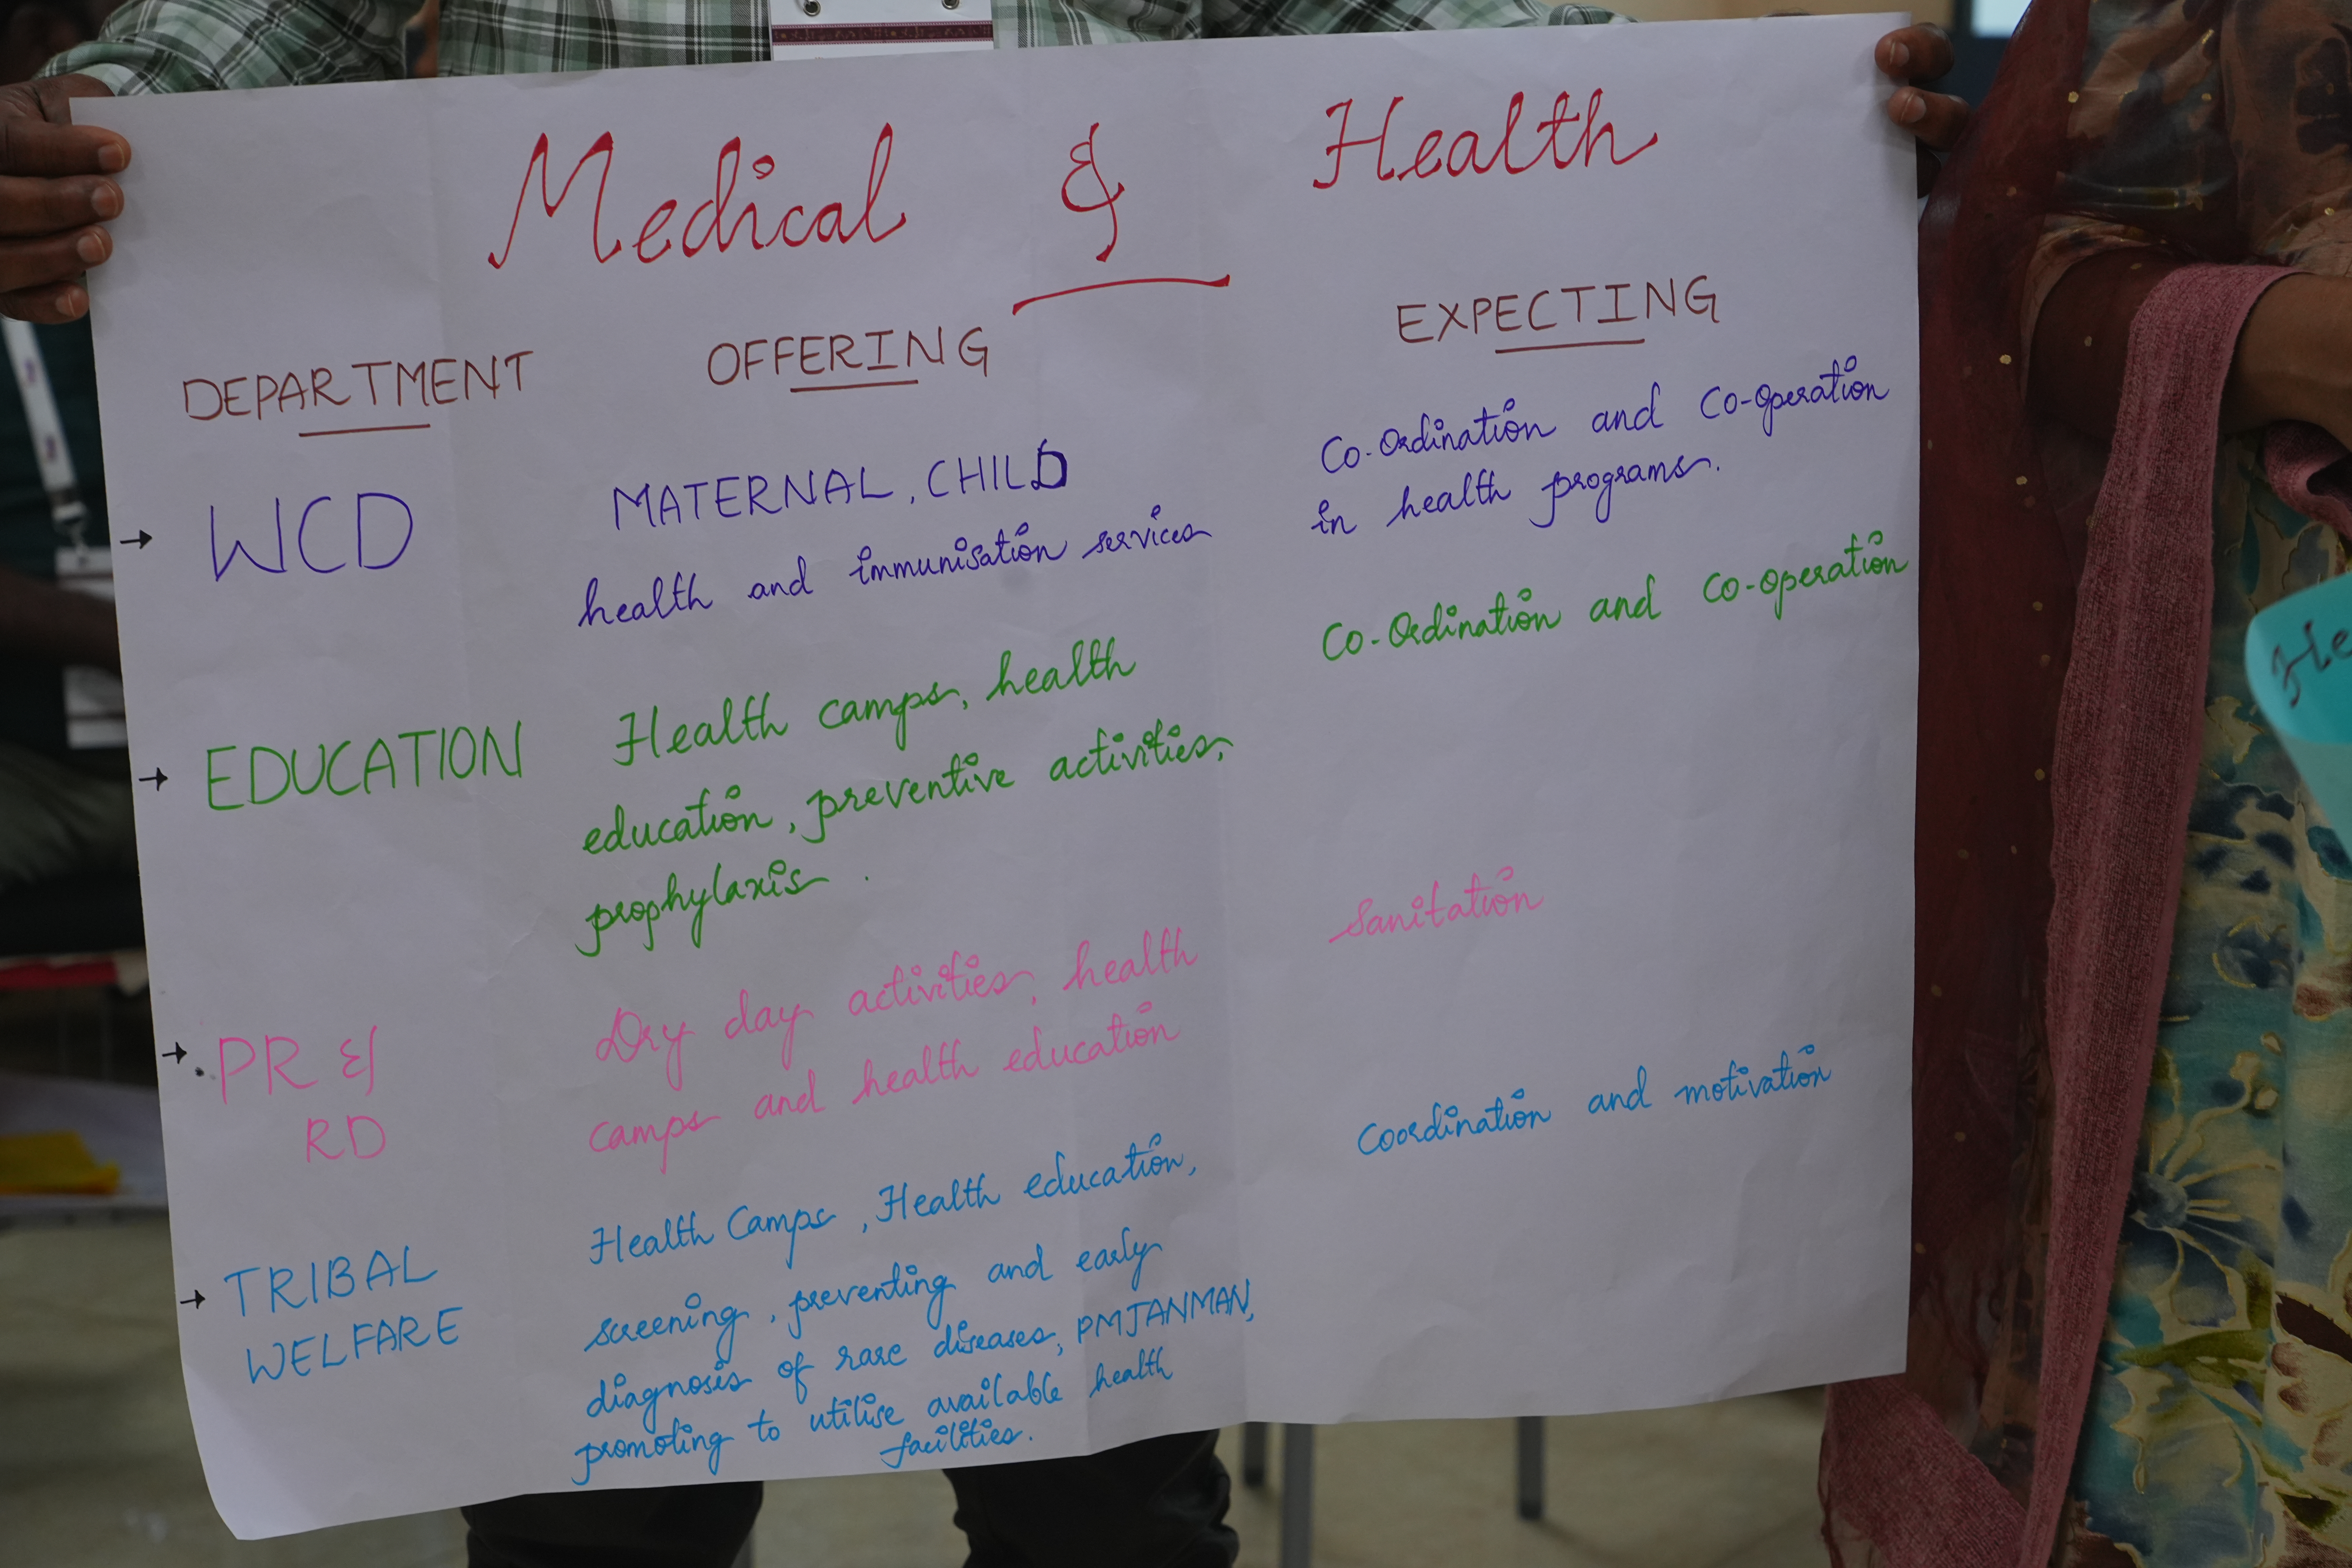 Medical & Health
DEPARTMENT OFFERING EXPECTING
→ WCD
MATERNAL, CHILD
health and immunisation services
Co-Ordination and Co-operation
in health programs.
→ EDUCATION
Health camps, health
education, preventive activities,
prophylaxis.
Co-Ordination and Co-operation
→ PR &
RD
Dry day activities, health
camps and health education
Sanitation
→ TRIBAL
WELFARE
Health Camps, Health education,
screening, preventing and early
diagnosis of rare diseases, PMJANMAN,
promoting to utilise available health
facilities.
Coordination and motivation
He